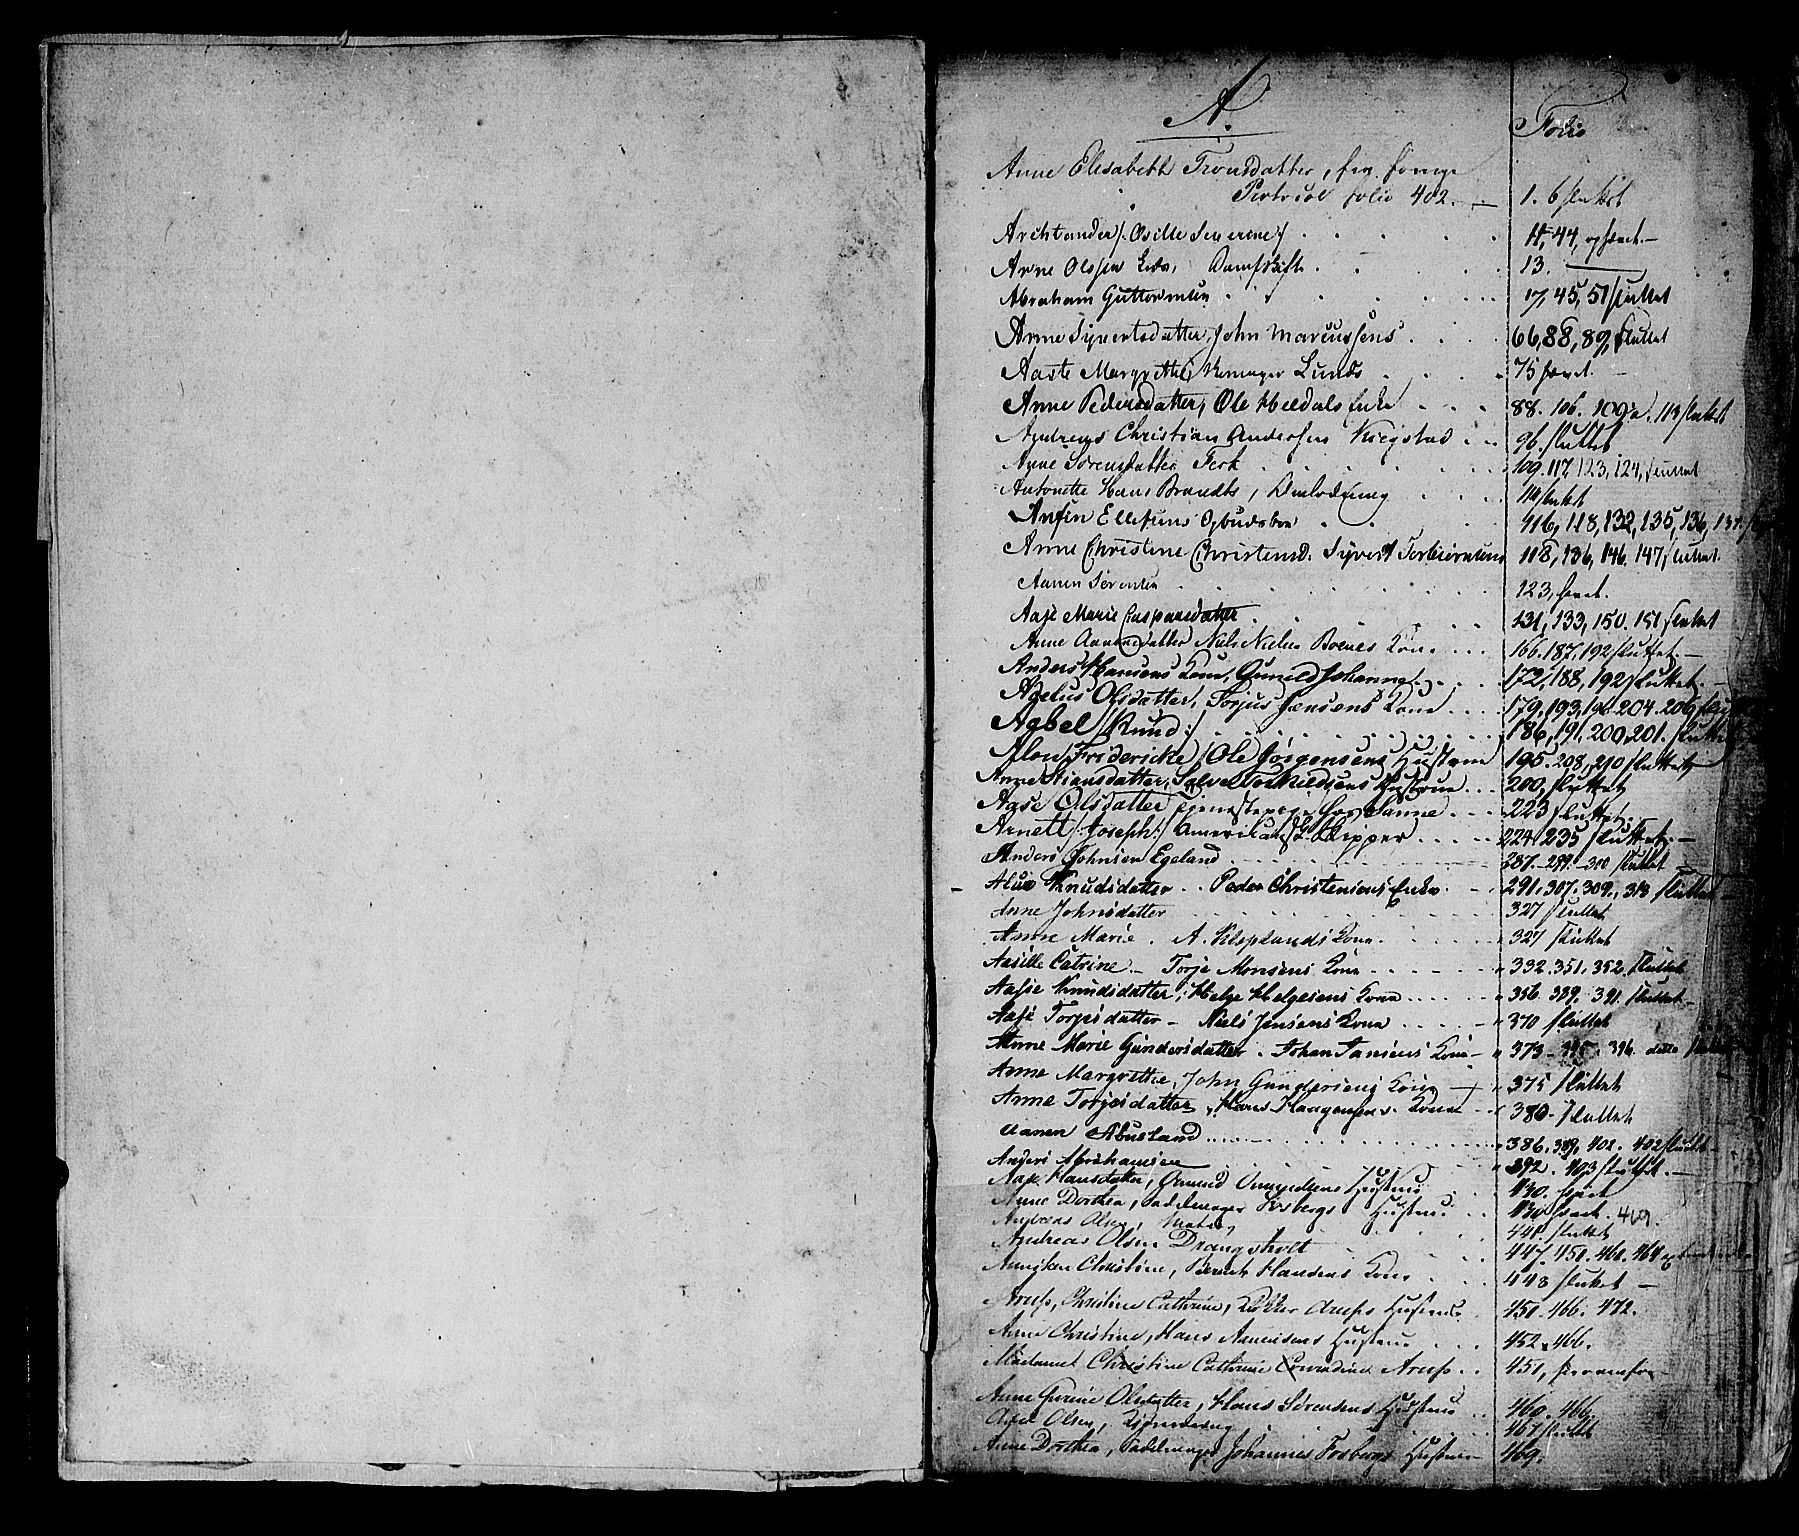 A.
Folio
Anne Elisabeth Tronsdatter, fra forrige
Protocol folio 402. 1. 6 sluttet
Archtander /: Osille Severine :/ 11, 44, ophævet.
Anne Olssen Dampskift. 13.
Abraham Guttormsen 17, 45, 51 sluttet
Anne Syvertsdatter, John Marcussens 66, 88, 89, sluttet
Aaste Margrethe Lunds 75 hævet.
Anne Pedersdatter, Ole Hædals Enke 88. 106. 109. 113 sluttet
Andreas Christian Andersen Krogstad 96. sluttet
Anne Sørensdatter Terk 109. 117, 123, 124, sluttet
Antonette Hans Brandts, 114 sluttet
Anfin Ellefsens Opbudsboe 116, 118, 132, 135, 136, 137.
Anne Christine Christensd. Syvert Torbiørnsens 118, 136, 146. 147, sluttet.
Aanen Sørensen 123, hævet.
Aase Marie Caspersdatter 131, 133, 150. 151, sluttet
Anne Aanensdatter Niels Nielsen Boenes Kone 166. 187, 192 sluttet.
Anders Hansens Kone, Gunild Johanne 172, 188, 192, sluttet.
Axelus Olsdatter, Torjus Jensens Kone 179, 193, 196. 204. 206
Agbel /: Knud :/ 186, 191. 200, 201. sluttet
Fridericke, Ole Jørgensens Hustrue 195. 208, 210 sluttet
Anne Stiansdatter, Salve Torkildsens Hustrue 200, sluttet
Aase Olsdatter tjenestepige hos Sanne 223 sluttet.
Arnett /: Joseph :/ Amerikansk Skipper 224. 235 sluttet.
Anders Johnsen Egeland 287. 289. 300 sluttet
Knudsdatter Peder Christensens Enke 291. 307. 309., 313 sluttet
Anne Johnsdatter 327 sluttet
Anne Marie. A. Kone. 327 sluttet
Aasille Catrine Torje Monsens Kone 332. 351. 352. sluttet
Aasse Knudsdatter, Helge Helgesens Kone 356. 389. 391. sluttet
Aase Torjesdatter Niels Jensens Kone 370 sluttet
Anne Marie Gundersdatter. Johan Kone 373 395. 396. dette
Anne Margrethe, John Gundersens Kone 375 sluttet
Anne Torjesdatter, Hans Haagensens Kone 380. sluttet
Aanen Abusland 386. 389, 402. 402 sluttet
Anders Abrahamsen 392. 403 sluttet.
Aase Hansdatter, Omund Omundsens Hustrue 430. hævet
Anne Dorthea, Sadelmager Fosbergs Hustrue 430 hævet. 469.
Andreas Olsen, Matros, 441. sluttet
Andreas Olsen Drangsholt 447. 450. 460. 464
Anniken Christine, Bernt Hansens Kone 448 sluttet
Arup, Christine Cathrine, Arups Hustrue 450. 466. 472.
Anne Christine, Hans Hustrue 452. 466.
Madamel Christine Cathrine Conradine Arup 451,
Anne Gurine Olsdatter, Hans Sørensens Hustrue 460. 466.
Axel Olsen, 467 sluttet
Anne Dorthea, Sadelmager Johannes Fosbergs Hustrue 469.